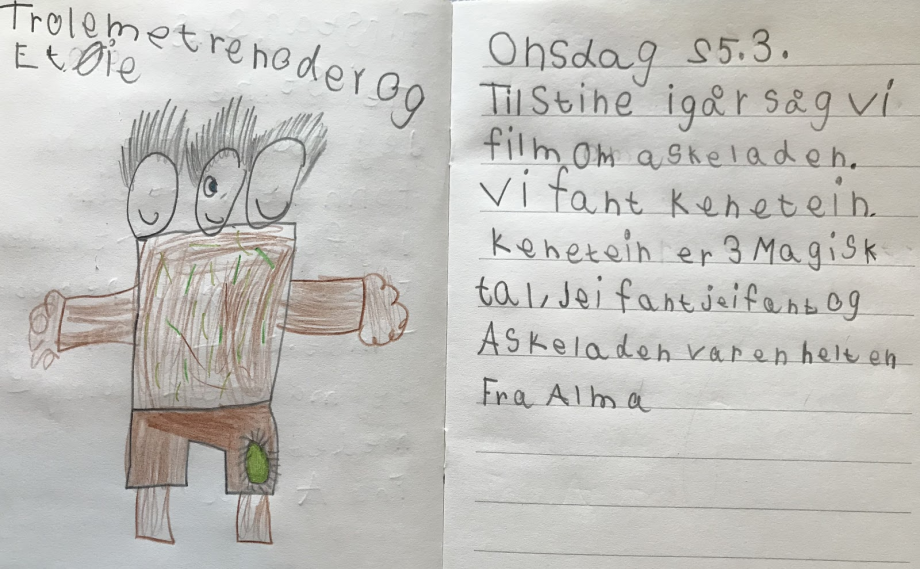 Trolemetrehoder og
Et Øie
Onsdag s5.3.
Til Stine igår såg vi
film om askeladen.
vi fant kenetein.
kenetein er 3 Magisk
tal, jei fant jei fant og
Askeladen var en helt en
Fra Alma